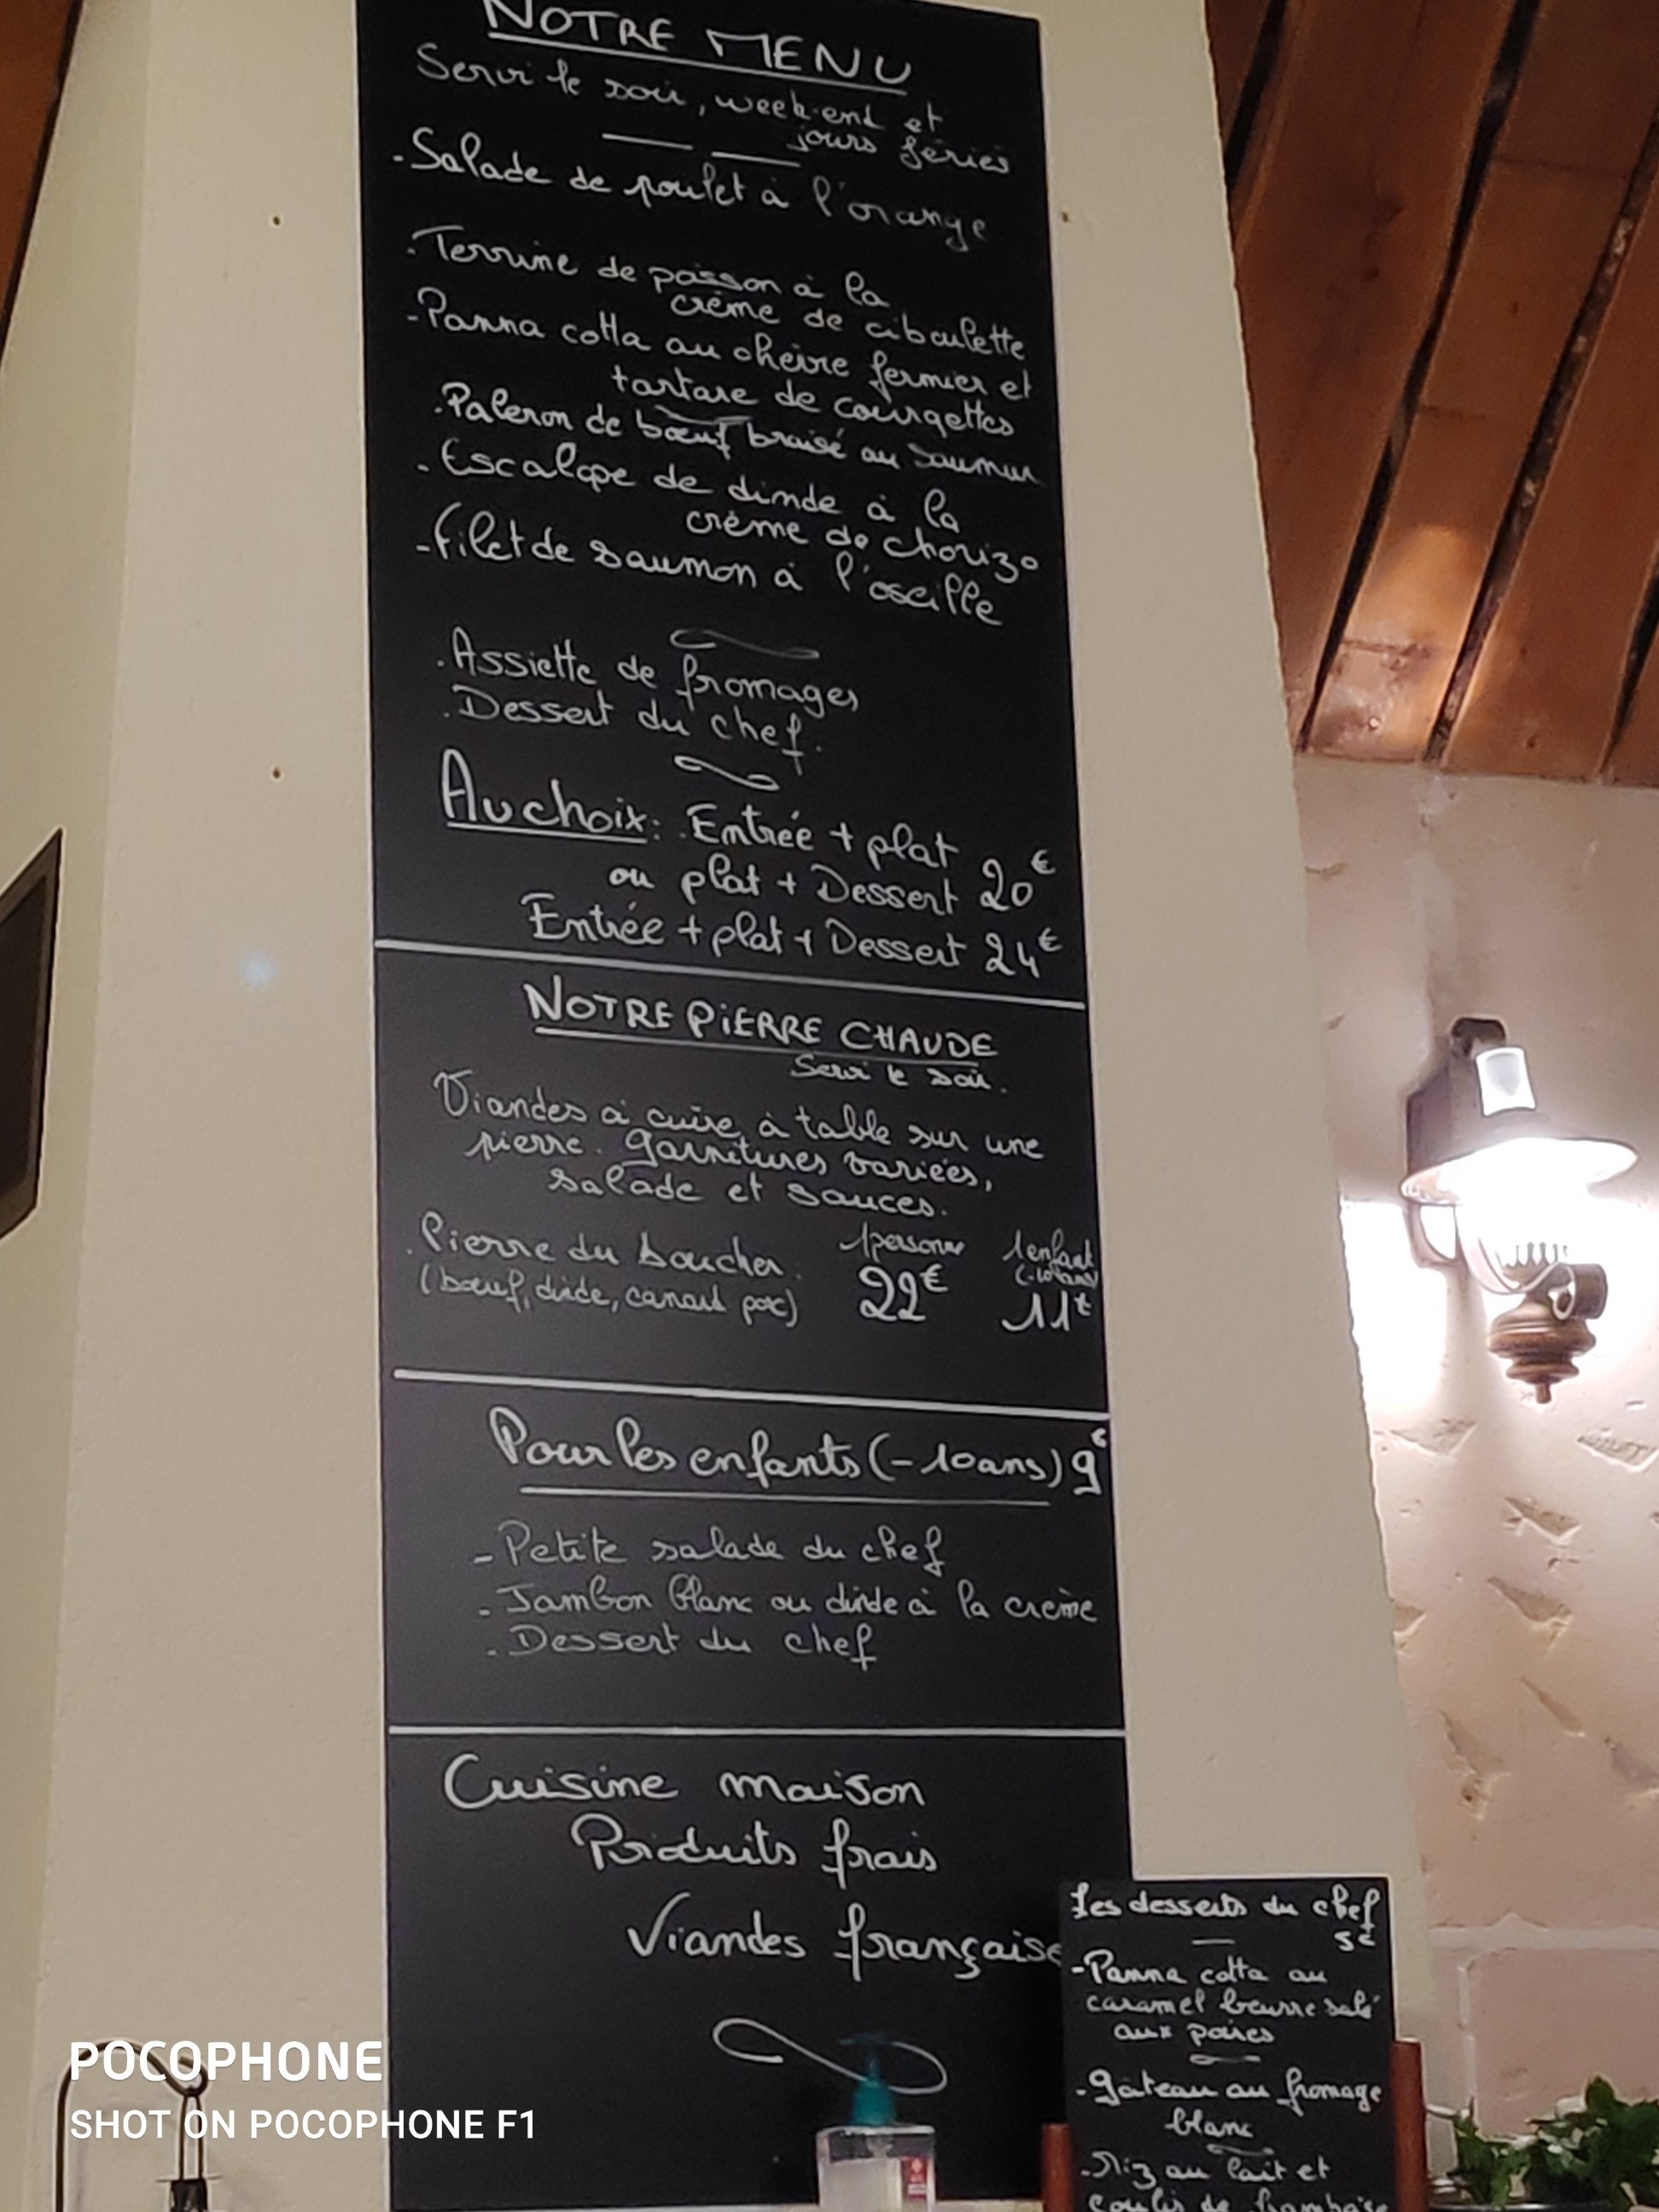 NOTRE MENU
Servi le soir, week-end et
jours fériés
- Salade de poulet à l'orange
. Terrine de poisson à la
crème de ciboulette
- Panna cotta au chèvre fermier et
tartare de courgettes
. Paleron de bœuf braisé au Saumur
- Escalope de dinde à la
crème de chorizo
- Filet de saumon à l'oseille
. Assiette de fromages
. Dessert du chef.
Au choix: . Entrée + plat
ou plat + Dessert 20€
Entrée + plat + Dessert 24€
NOTRE PIERRE CHAUDE
Servi le soir.
Viandes à cuire à table sur une
pierre. Garnitures variées,
salade et sauces.
. Pierre du boucher. 1personne 1enfant
(-10ans)
(bœuf, dinde, canard porc) 22€ 11€
Pour les enfants (-10ans) 9€
- Petite salade du chef
- Jambon blanc ou dinde à la crème
- Dessert du chef
Cuisine maison
Produits frais
Viandes française
Les desserts du chef
5€
- Panna cotta au
caramel beurre salé
aux poires
- Gâteau au fromage
blanc
- Riz au lait et
coulis de framboise
POCOPHONE
SHOT ON POCOPHONE F1